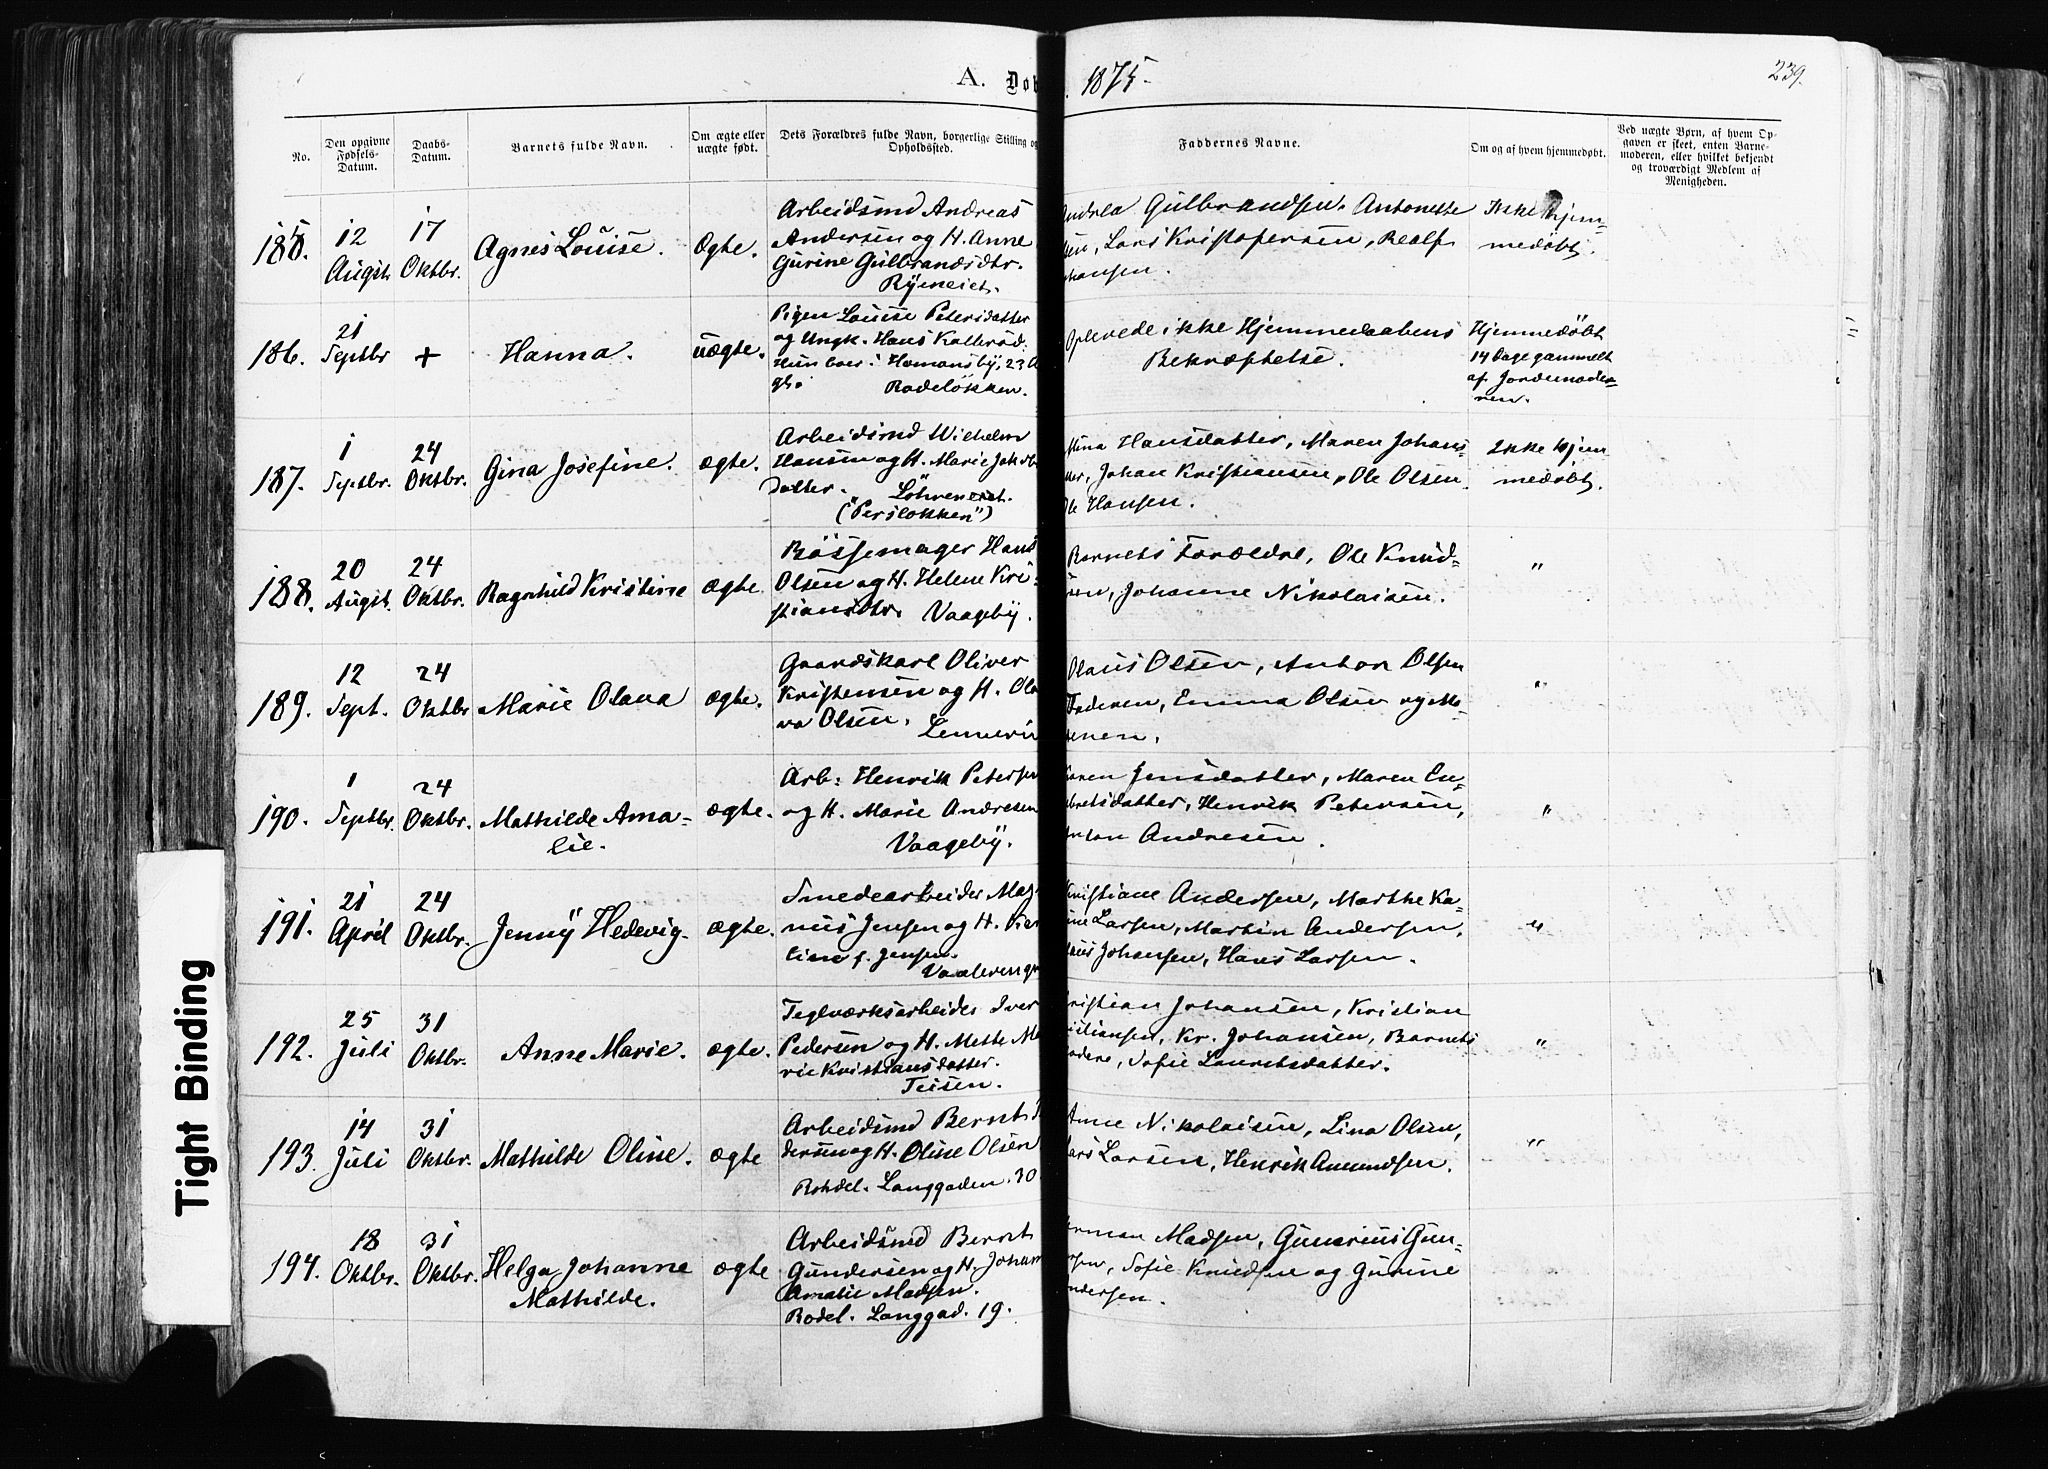 A. Døb 1875. 239.
No.
Den opgivne Fødsels-Datum.
Daabs-Datum.
Barnets fulde Navn.
Om ægte eller uægte født.
Dets Forældres fulde Navn, borgerlige Stilling og Opholdssted.
Faddernes Navne.
Om og af hvem hjemmedøbt.
Ved uægte Børn, af hvem Op-
gaven er skeet, enten Barne-
moderen, eller hvilket bekjendt
og troværdigt Medlem af
Menigheden.
185. 12 Augst. 17 Oktbr. Agnes Louise. Ægte.
Arbeidsmd Andreas
Andersen og H. Anne
Gurine Gulbrandsdtr.
Ryeneiet.
Gulbrandsen. Antonette
Lars Kristofersen, Realf
Ikke hjem-
medøbt.
186. 21 Septbr + Hanna. uægte.
Pigen Louise Petersdatter
og Ungk. Hans Kallerød.
Hun boer: Homansby, 23
Rodeløkken.
Oplevede ikke Hjemmedaabens
Bekræftelse.
Hjemmedøbt
14 Dage gammelt
af Jordemode-
ren.
187. 1 Septbr. 24 Oktbr. Gina Josefine. ægte.
Arbeidsmd Wilhelm
Hansen og H. Marie Jakob
datter.
("Persløkken")
Hansdatter, Maren Johans-
Johan Kristiansen, Ole Olsen
Hansen.
Ikke hjem
medøbt.
188. 20 Augst. 24 Oktbr. Ragnhild Kristine ægte.
Bøssemager Hans
Olsen og H. Helene Kri-
stiansdtr. Vaageby.
Barnets Forældre, Ole Knud-
sen, Johanne Nikolaisen.
"
189. 12 Sept. 24 Oktbr Marie Olava ægte.
Gaardskarl Oliver
Kristensen og H. Ola
va Olsen.
Olaus Olsen, Anton Olsen
Faderen, Emma Olsen og Mo-
"
190. 1 Septbr. 24 Oktbr. Mathilde Ama-
lie. ægte.
Arb: Henrik Petersen
og H. Marie Andresen
Vaageby.
Jensdatter, Maren En-
Henrik Petersen,
Andresen.
"
191. 21 April 24 Oktbr. Jenny Hedevig. ægte.
Smedearbeider Mag
nus Jensen og H.
line f. Jensen.
Kristiane Andersen, Marthe Ka-
Larsen, Martin Andersen,
Johansen, Hans Larsen.
"
192. 25 Juli 31 Oktbr. Anne Marie. ægte.
Teglværksarbeider Iver
Pedersen og H. Mette Ma
rie Kristiansdatter.
Teisen.
Johansen, Kristian
Kr. Johansen, Barnets
Sofie Lauritsdatter.
"
193. 14 Juli 31 Oktbr. Mathilde Oline. ægte
Arbeidsmd Bernt
og H. Oline Olsen
Rohdel. Langgaden. 30
Anne Nikolaisen, Lina Olsen,
Lars Larsen, Henrik Amundsen.
"
194. 18 Oktbr. 31 Oktbr. Helga Johanne
Mathilde. ægte
Arbeidsmd Bernt
Gundersen og H. Johan
Amalie Madsen.
Rodel. Langgad. 19.
Madsen, Gunerius Gun-
Sofie Knudsen og Gurine
Tight Binding